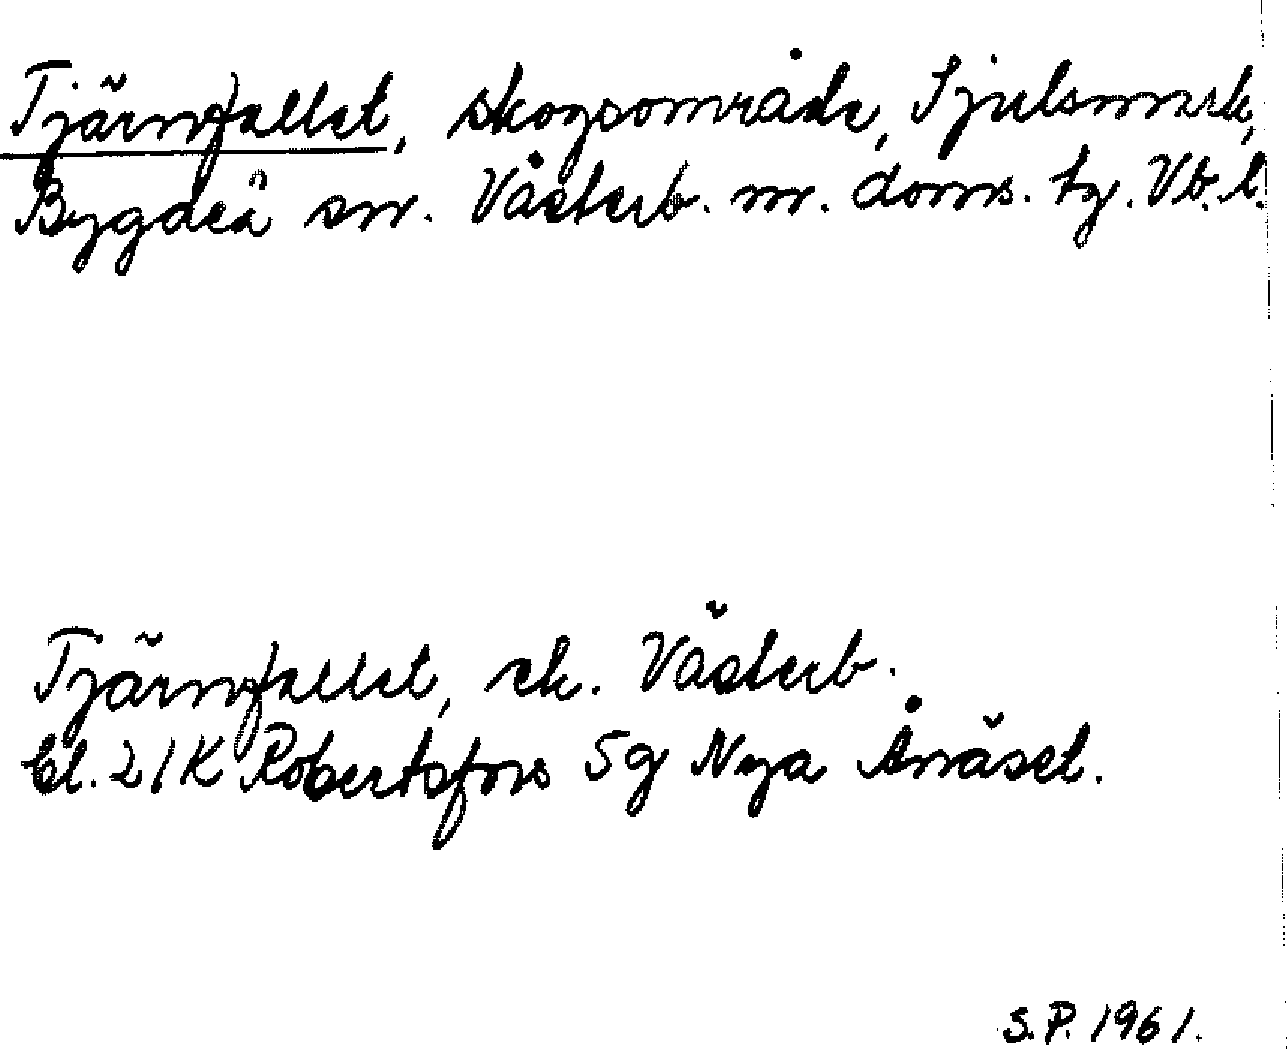 Tjärnfallet, skogsområde, Sjulsmark,
Bygdeå sn. Västerb. n. doms. tg. Vb. l.
Tjärnfallet, ek. Västerb.
bl. 21K Robertsfors 5g Nya Ånäset.
S.P. 1961.